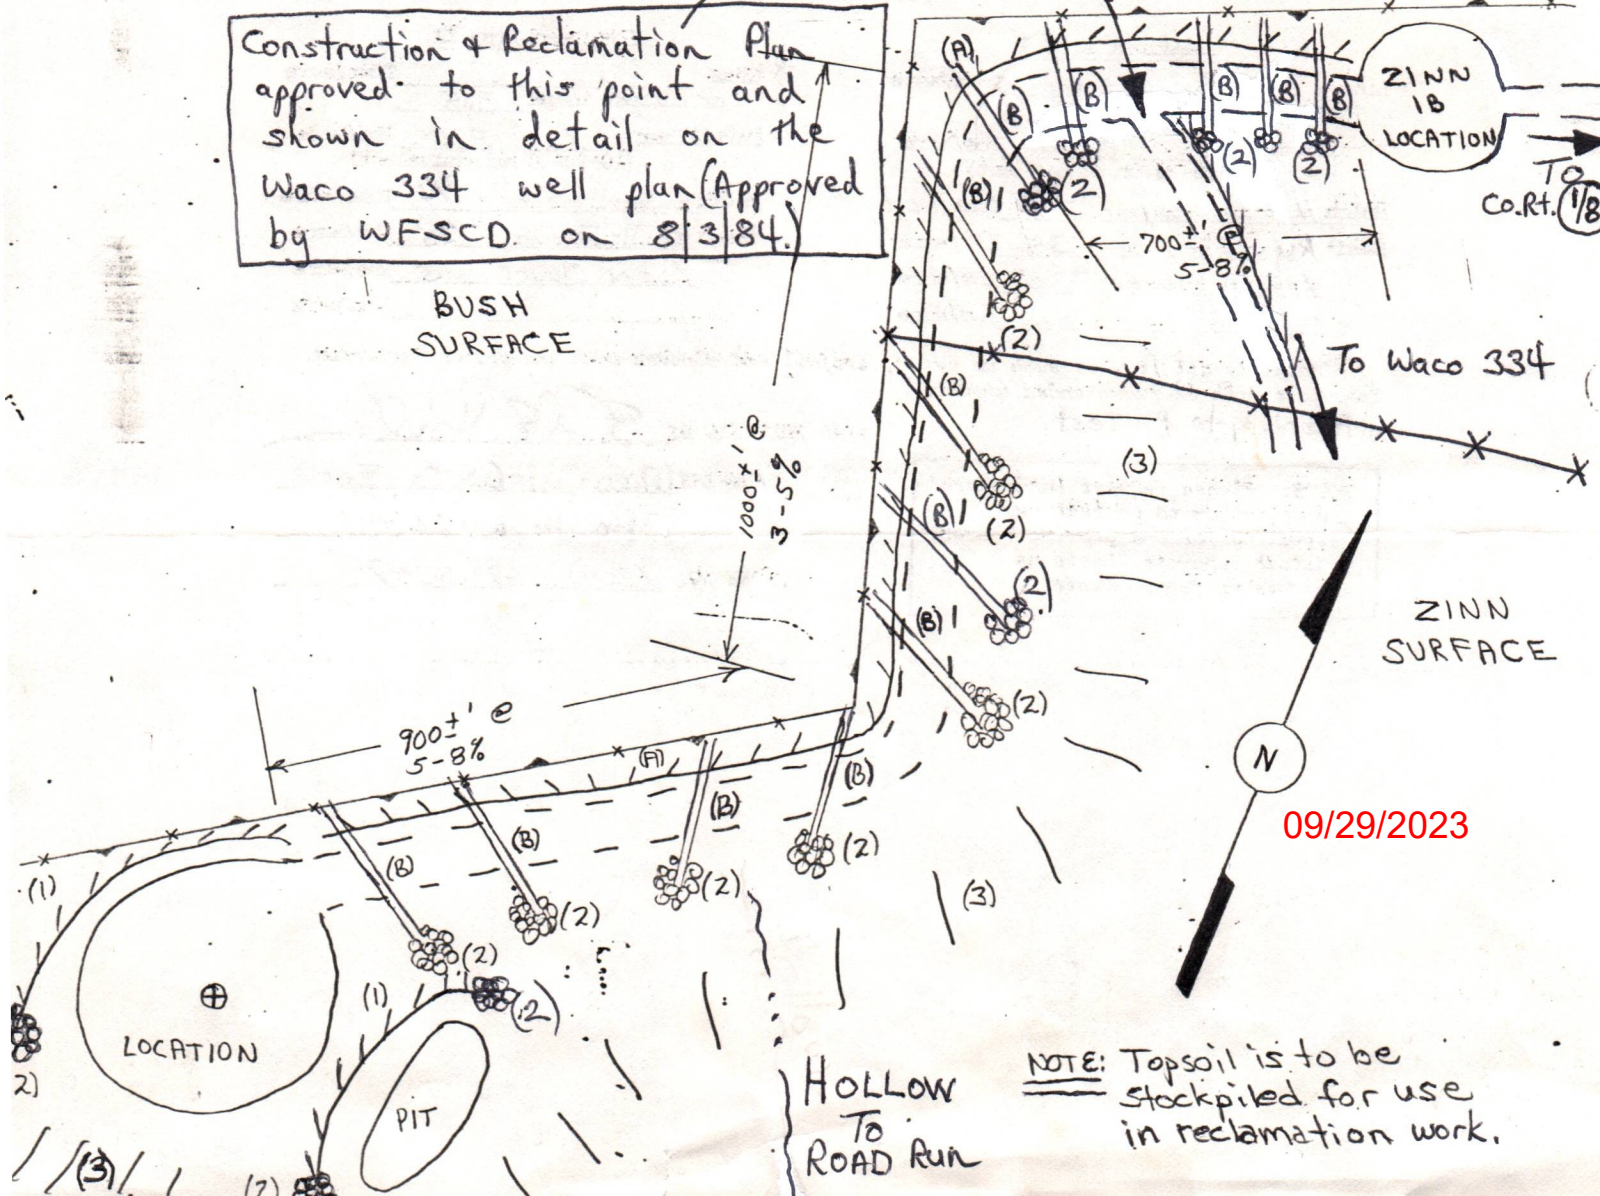 Construction & Reclamation Plan
approved to this point and
shown in detail on the
Waco 334 well plan (Approved
by WFSCD on 8/3/84.)
BUSH
SURFACE
(A)
(B)
(B)
(B)
(B)
(B)
ZINN
1B
LOCATION
TO
Co.Rt. 1/8
(2)
(2)
(2)
(B)
700±' @
5-8%
(2)
To Waco 334
(B)
(3)
1000±' @
3-5%
(B)
(2)
(2)
(B)
(2)
ZINN
SURFACE
N
09/29/2023
900±' @
5-8%
(A)
(B)
(B)
(B)
(B)
(2)
(2)
(2)
(2)
(3)
(1)
(1)
(2)
LOCATION
PIT
2)
(3)
(2)
HOLLOW
TO
ROAD RUN
NOTE: Topsoil is to be
stockpiled for use
in reclamation work.